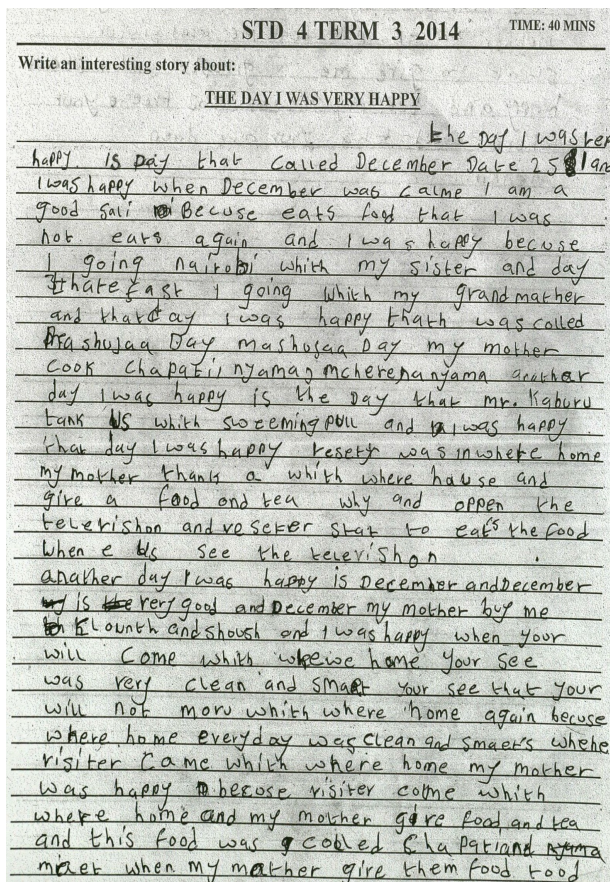 STD 4 TERM 3 2014 TIME: 40 MINS
Write an interesting story about:
THE DAY I WAS VERY HAPPY
the Day I was ver
happy is Day that called December Date 25 and
I was happy when December was calme I am a
good Becuse eats food that I was
not eats again and I was happy becuse
I going nairobi whith my sister and day
I going which my grandmather
and that day I was happy thath was colled
Mashujaa Day mashujaa Day my mother
cook chapatii nyama
day I was happy is the Day that mr. Kaburu
tank us whith sweemingpull and I was happy
that day I was happy was in where home
my mother thank a whith where hause and
give a food and tea why and oppen the
televishon and stat to eats the food
when e us see the televishon
anather day I was happy is December and December
is very good and December my mother buy me
and shoush and I was happy when your
will come whith home your see
was very clean and smaet your see that your
will not moru whith where home again becuse
where home everyday was clean and smaers whehe
visiter came whith where home my mother
was happy becose visiter come whith
where home and my mother give food and tea
and this food was colled chapati and nyama
when my mather give them food tood